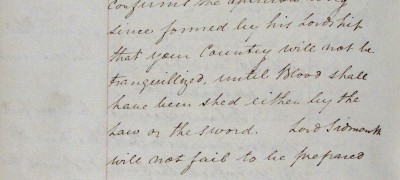 confirms the opinion long
since formed by his Lordship
that your Country will not be
tranquillized, until Blood shall
have been shed either by the
Law or the sword. Lord Sidmouth
will not fail to be prepared